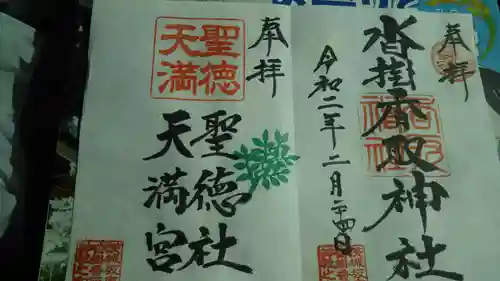 奉拝
沓掛香取神社
令和二年二月二十四日
奉拝
聖徳
天満
聖徳社
天満宮